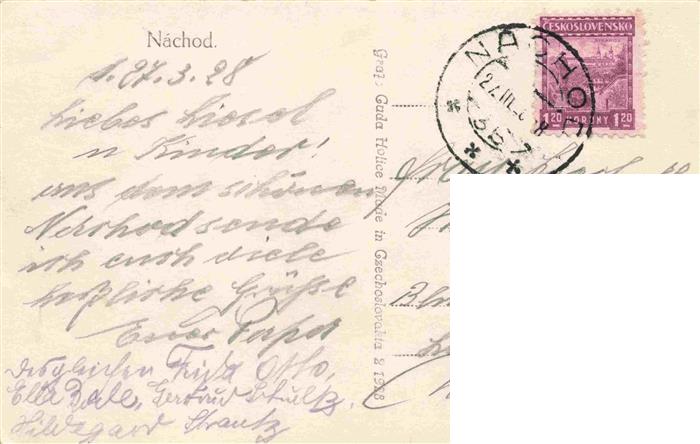 Náchod.
d. 27.3.28
Liebes Liesel
u Kinder!
aus dem schönen
Nachod sende
ich euch viele
herzliche Grüße
Euer Papa
desgleichen Frida Otto,
Ella Bale, Gertrud Schultz,
Hildegard Strantz
Graf: Guda Holice Made in Czechoslovakia 2 1928
NÁCHOD
27.III.28
ČESKOSLOVENSKO
1 20 KORUNY 1 20